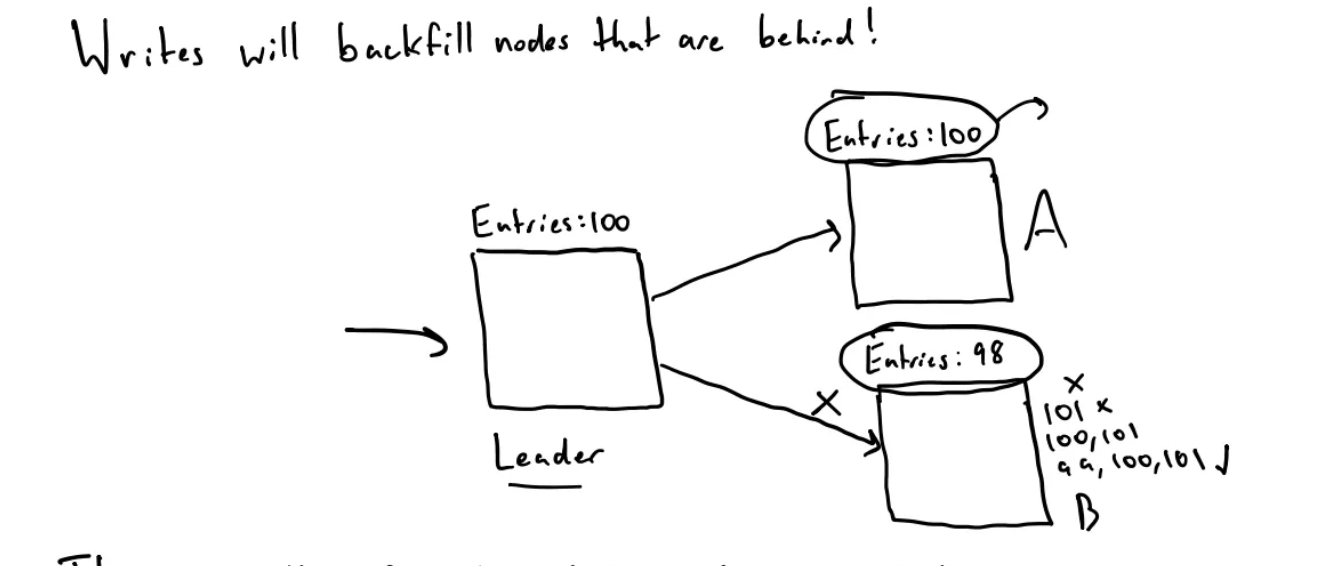 Writes will backfill nodes that are behind!
Entries:100
A
Entries:100
Leader
Entries: 98
x
x
101 x
100,101
99,100,101 ✓
B